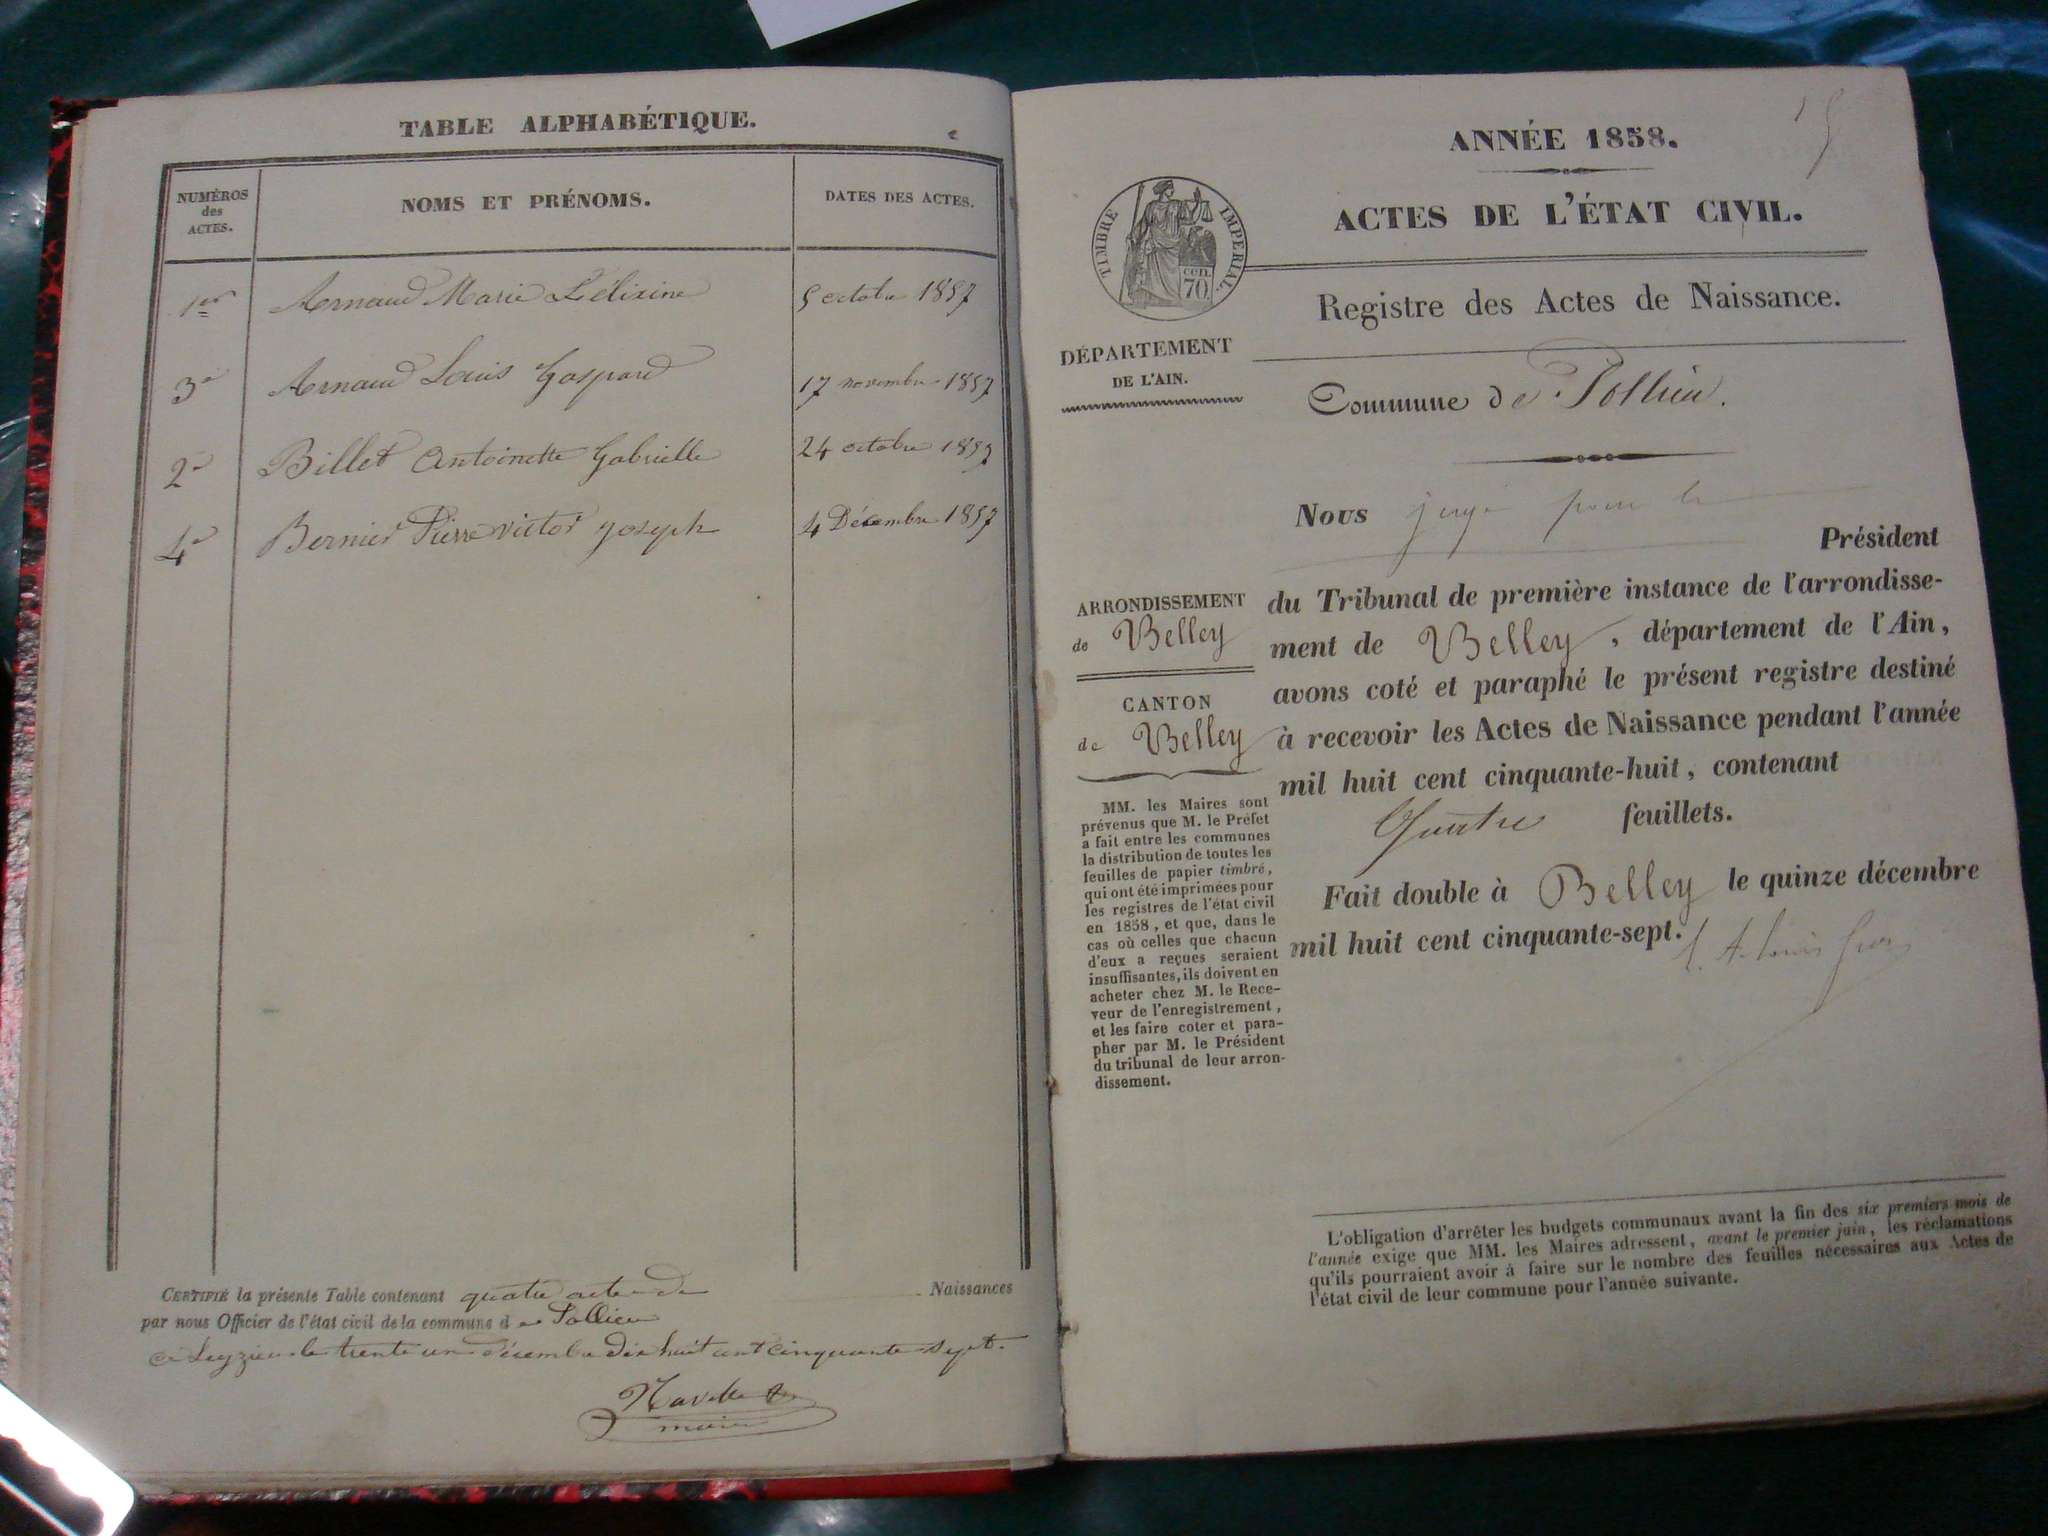 TABLE ALPHABÉTIQUE.
NUMÉROS
des
ACTES.
NOMS ET PRÉNOMS.
DATES DES ACTES.
1er Arnaud Marie 5 octobre 1857
3e Arnaud Louis Gaspard 17 novembre 1857
2e Billet Antoinette Gabrielle 24 octobre 1857
4e Bernier Pierre victor joseph 4 Décembre 1857
CERTIFIÉ la présente Table contenant quatre actes de Naissances
par nous Officier de l'état civil de la commune de Pollieu
le trente un Décembre dix huit cent cinquante sept.
maire
15
ANNÉE 1858.
ACTES DE L'ÉTAT CIVIL.
TIMBRE IMPERIAL.
cen.
70.
Registre des Actes de Naissance.
DÉPARTEMENT
DE L'AIN.
Commune de Pollieu.
Nous juge pour le
Président
du Tribunal de première instance de l'arrondisse-
ment de Belley, département de l'Ain,
avons coté et paraphé le présent registre destiné
à recevoir les Actes de Naissance pendant l'année
mil huit cent cinquante-huit, contenant
Quatre feuillets.
Fait double à Belley le quinze décembre
mil huit cent cinquante-sept.
ARRONDISSEMENT
de Belley
CANTON
de Belley
MM. les Maires sont
prévenus que M. le Préfet
a fait entre les communes
la distribution de toutes les
feuilles de papier timbré,
qui ont été imprimées pour
les registres de l'état civil
en 1858, et que, dans le
cas où celles que chacun
d'eux a reçues seraient
insuffisantes, ils doivent en
acheter chez M. le Rece-
veur de l'enregistrement,
et les faire coter et para-
pher par M. le Président
du tribunal de leur arron-
dissement.
L'obligation d'arrêter les budgets communaux avant la fin des six premiers mois de
l'année exige que MM. les Maires adressent, avant le premier juin, les réclamations
qu'ils pourraient avoir à faire sur le nombre des feuilles nécessaires aux Actes de
l'état civil de leur commune pour l'année suivante.